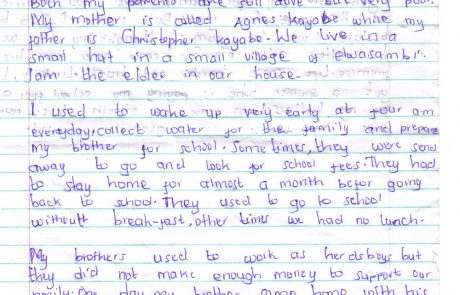 Both my parents are still alive but very poor.
My mother is called Agnes kayabe while my
father is Christopher kayabe. We live in a
small hut in a small village of Ebusasambi.
I am the elder in our house.
I used to wake up very early at four am
everyday, collect water for the family and prepare
my brother for school. Some times, they were send
away to go and look for school fees. They had
to stay home for almost a month befor going
back to school. They used to go to school
without break-fast, other times we had no lunch.
My brothers used to work as herdsboys but
they did not make enough money to support our
family. One day my brother came home with his